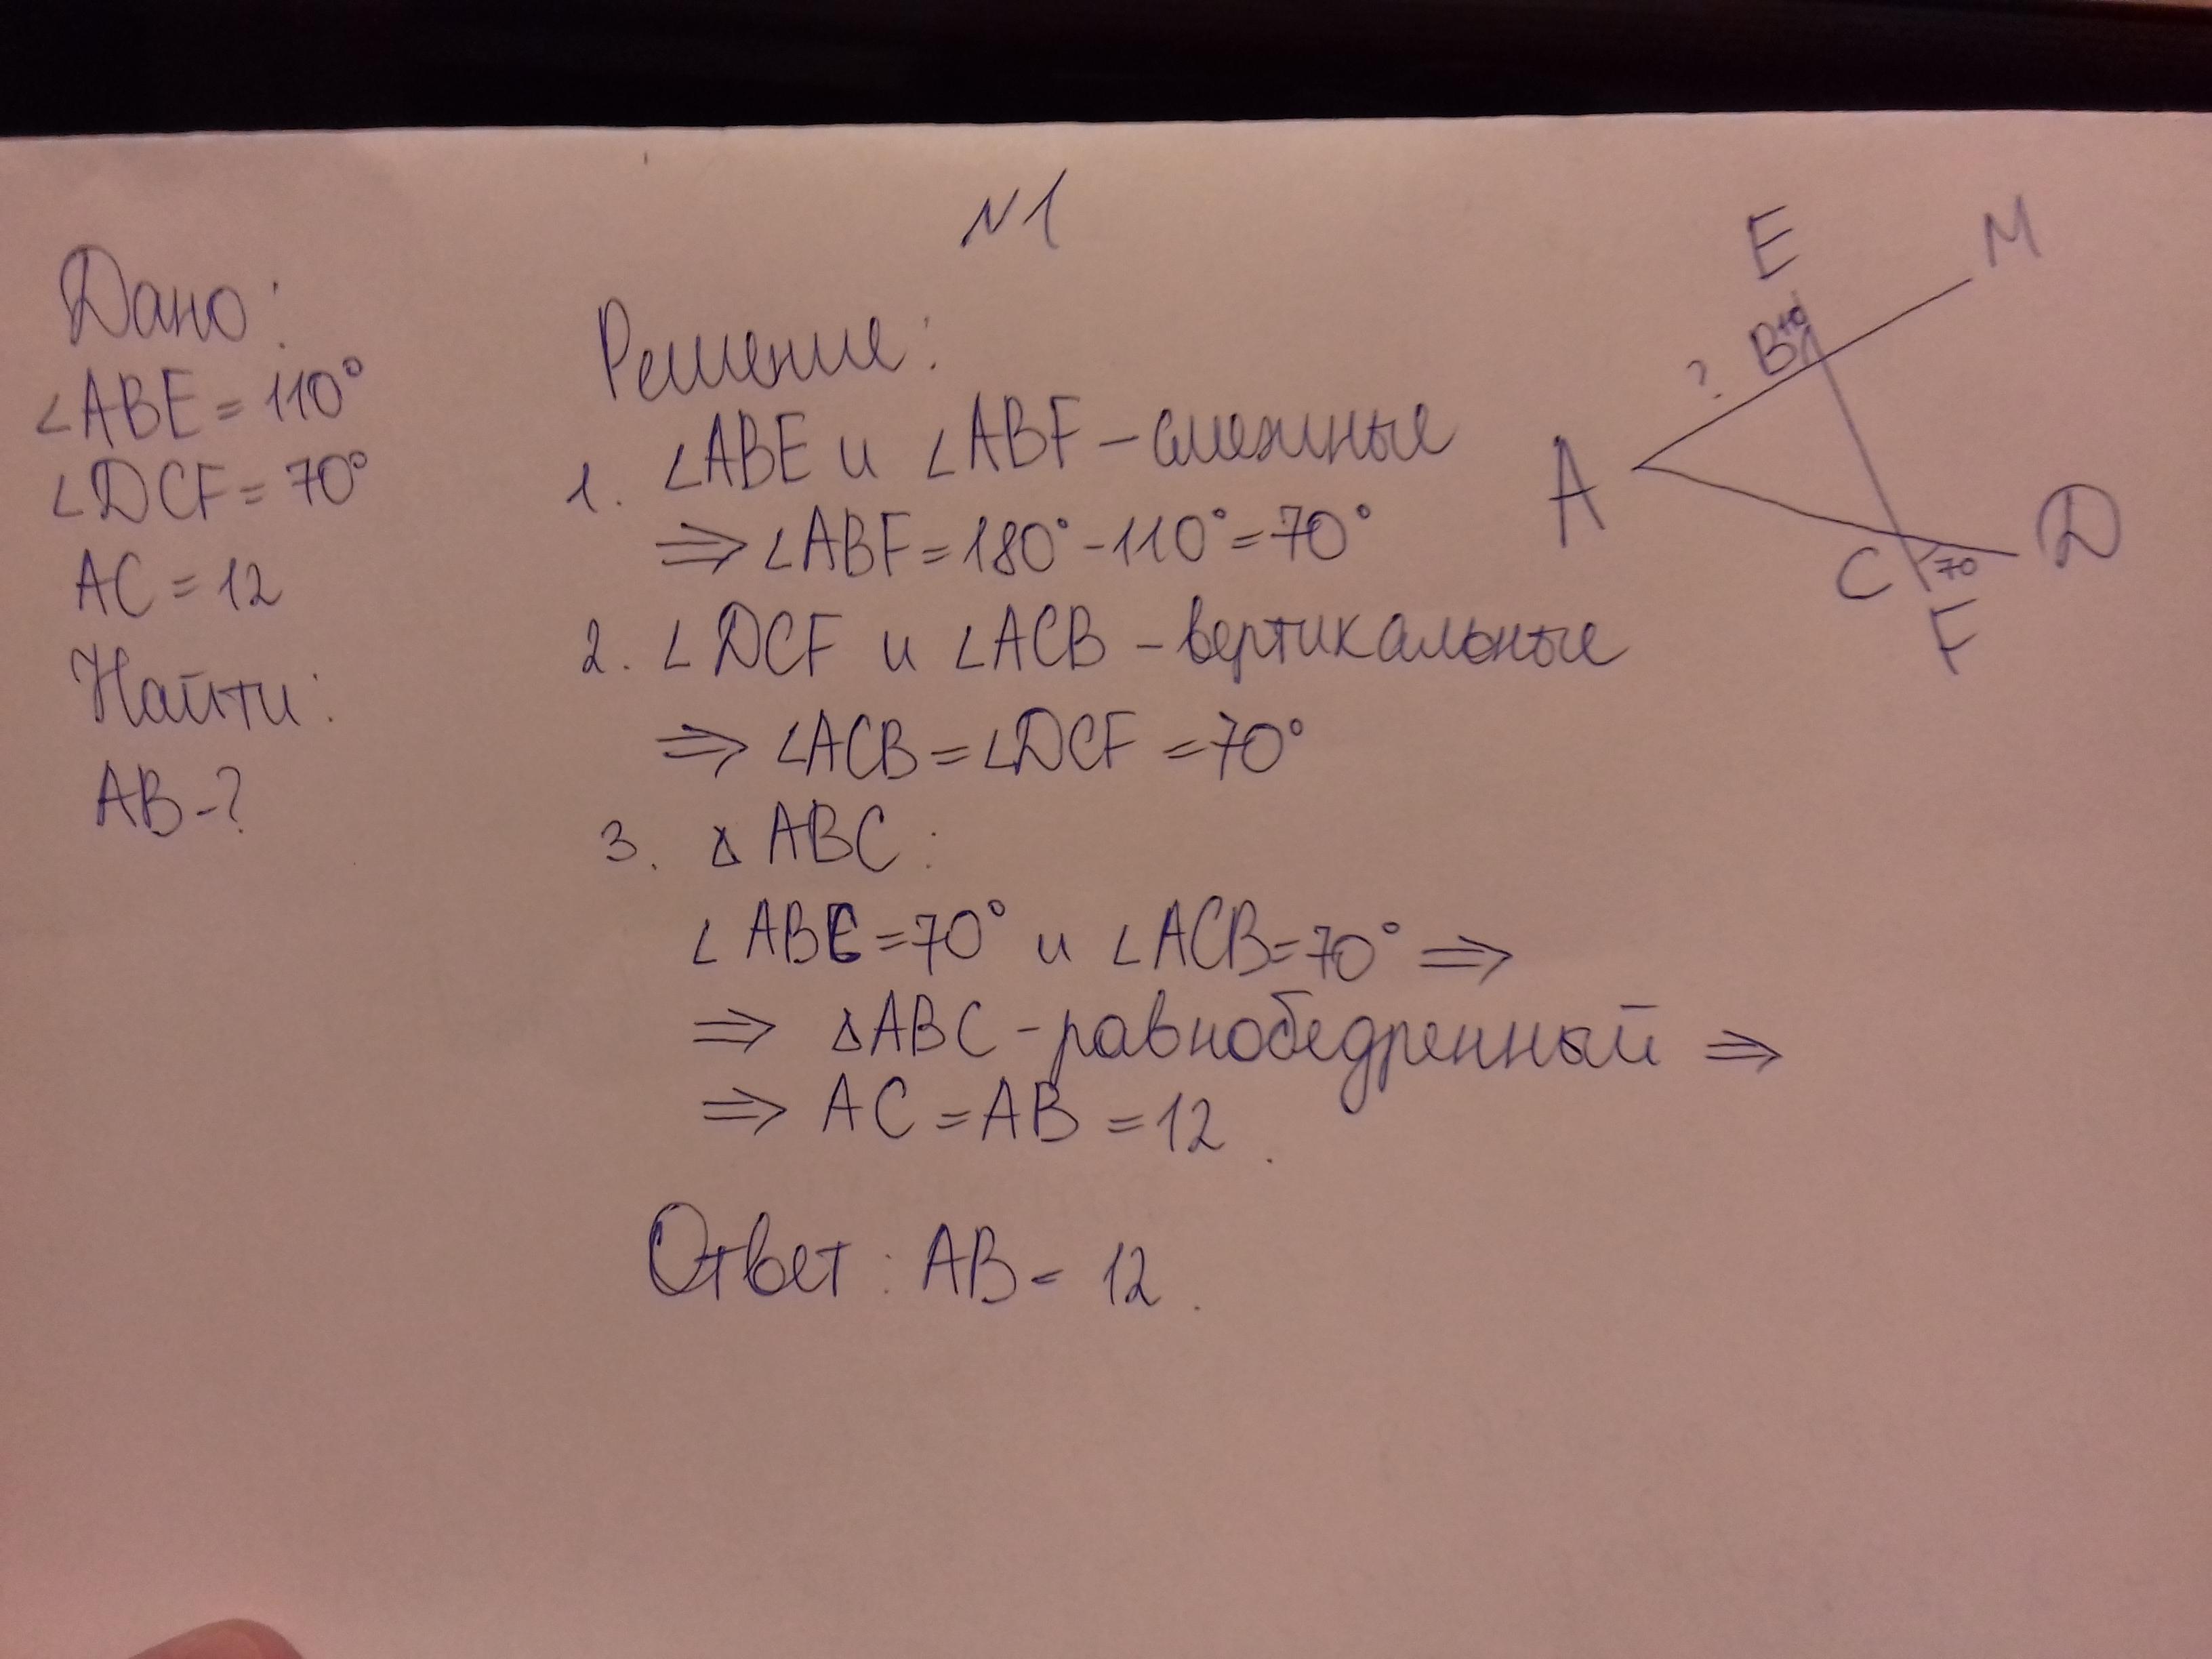 N1
Дано:
∠ABE = 110°
∠DCF = 70°
AC = 12
Найти:
AB - ?
Решение:
1. ∠ABE и ∠ABF – смежные
⇒ ∠ABF = 180° - 110° = 70°
2. ∠DCF и ∠ACB – вертикальные
⇒ ∠ACB = ∠DCF = 70°
3. Δ ABC:
∠ABC = 70° и ∠ACB = 70° ⇒
⇒ ΔABC – равнобедренный ⇒
⇒ AC = AB = 12.
Ответ: AB = 12.
E
M
B
?
A
C
70
D
F